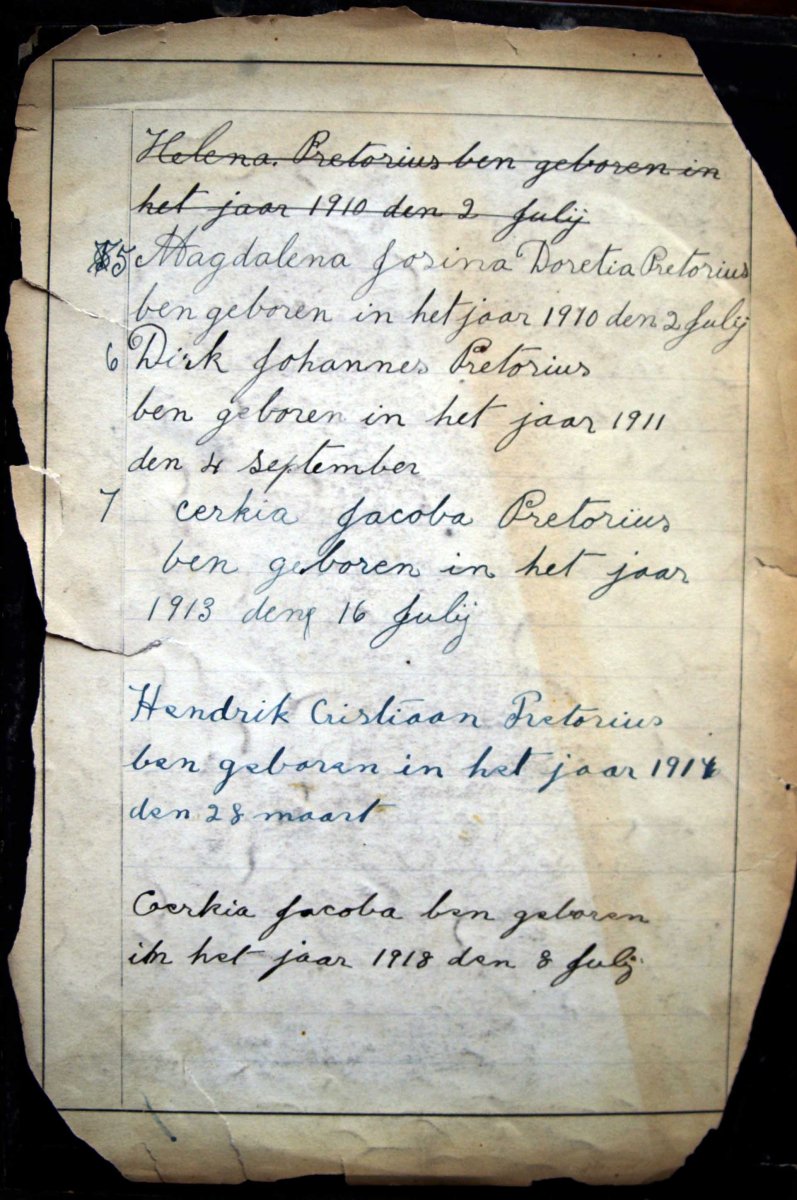 Helena. Pretorius ben geboren in
het jaar 1910 den 2 Julij
5 Magdalena Josina Doretia Pretorius
ben geboren in het jaar 1910 den 2 Julij
6 Dirk Johannes Pretorius
ben geboren in het jaar 1911
den 4 September
7 cerkia Jacoba Pretorius
ben geboren in het jaar
1913 den 16 Julij
Hendrik Cristiaan Pretorius
ben geboren in het jaar 1914
den 28 maart
Cerkia Jacoba ben geboren
in het jaar 1918 den 8 Julij